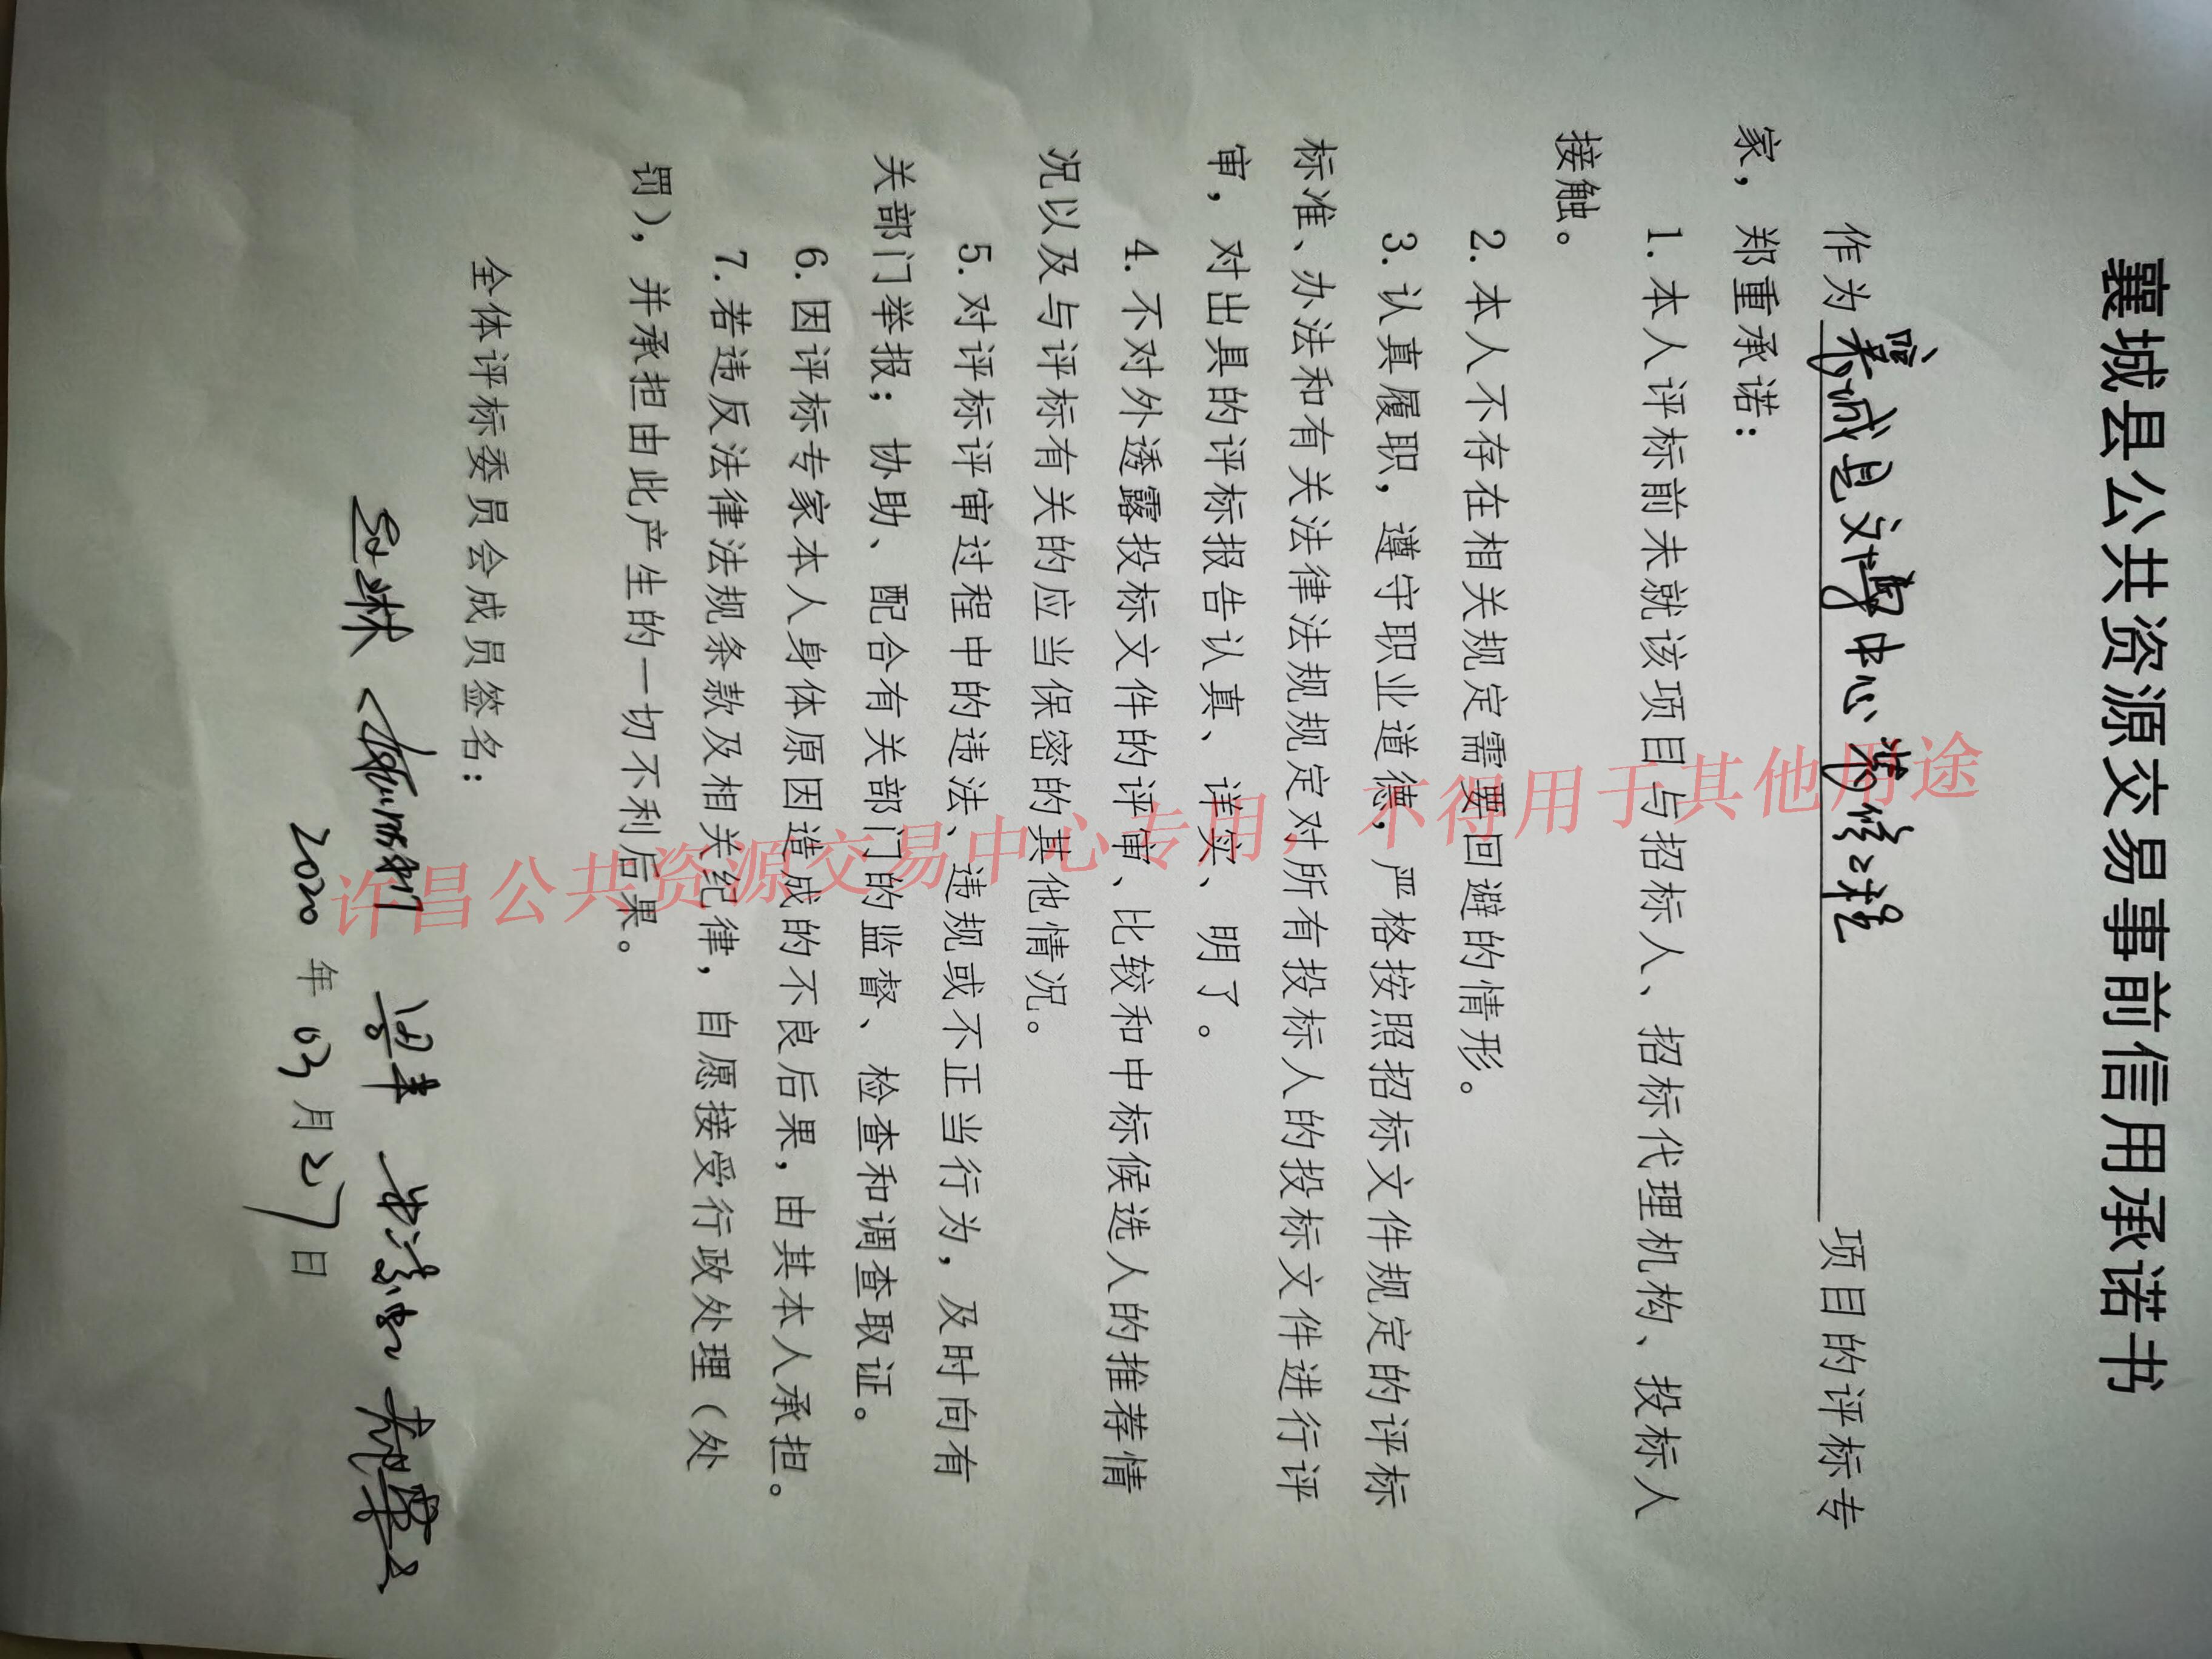 襄城县公共资源交易事前信用承诺书
作为襄城县文博中心装修工程项目的评标专
家，郑重承诺：
1.本人评标前未就该项目与招标人、招标代理机构、投标人
接触。
2.本人不存在相关规定需要回避的情形。
3.认真履职，遵守职业道德，严格按照招标文件规定的评标
标准、办法和有关法律法规规定对所有投标人的投标文件进行评
审，对出具的评标报告认真、详实、明了。
4.不对外透露投标文件的评审、比较和中标候选人的推荐情
况以及与评标有关的应当保密的其他情况。
5.对评标评审过程中的违法、违规或不正当行为，及时向有
关部门举报；协助、配合有关部门的监督、检查和调查取证。
6.因评标专家本人身体原因造成的不良后果，由其本人承担。
7.若违反法律法规条款及相关纪律，自愿接受行政处理（处
罚），并承担由此产生的一切不利后果。
全体评标委员会成员签名：
2020年03月27日
许昌公共资源交易中心专用，不得用于其他用途